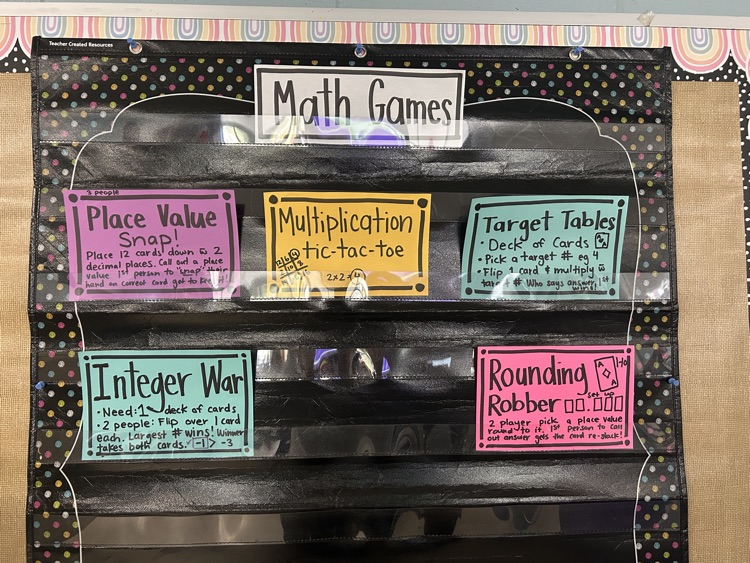 Teacher Created Resources
Math Games
3 people
Place Value
Snap!
Place 12 cards down w 2
decimal places. Call out a place
value 1st person to "snap" their
hand on correct card get to keep it!
Multiplication
tic-tac-toe
2x2=4
Target Tables
• Deck of Cards
• Pick a target # eg 4
• Flip 1 card & multiply w
target # Who says answer 1st
wins!
Integer War
• Need: 1 deck of cards
• 2 people: Flip over 1 card
each. Largest # wins! Winner
takes both cards. -1 > -3
Rounding
Robber
A
A
set up
2 player pick a place value
round to it. 1st person to call
out answer gets the card re-stack!